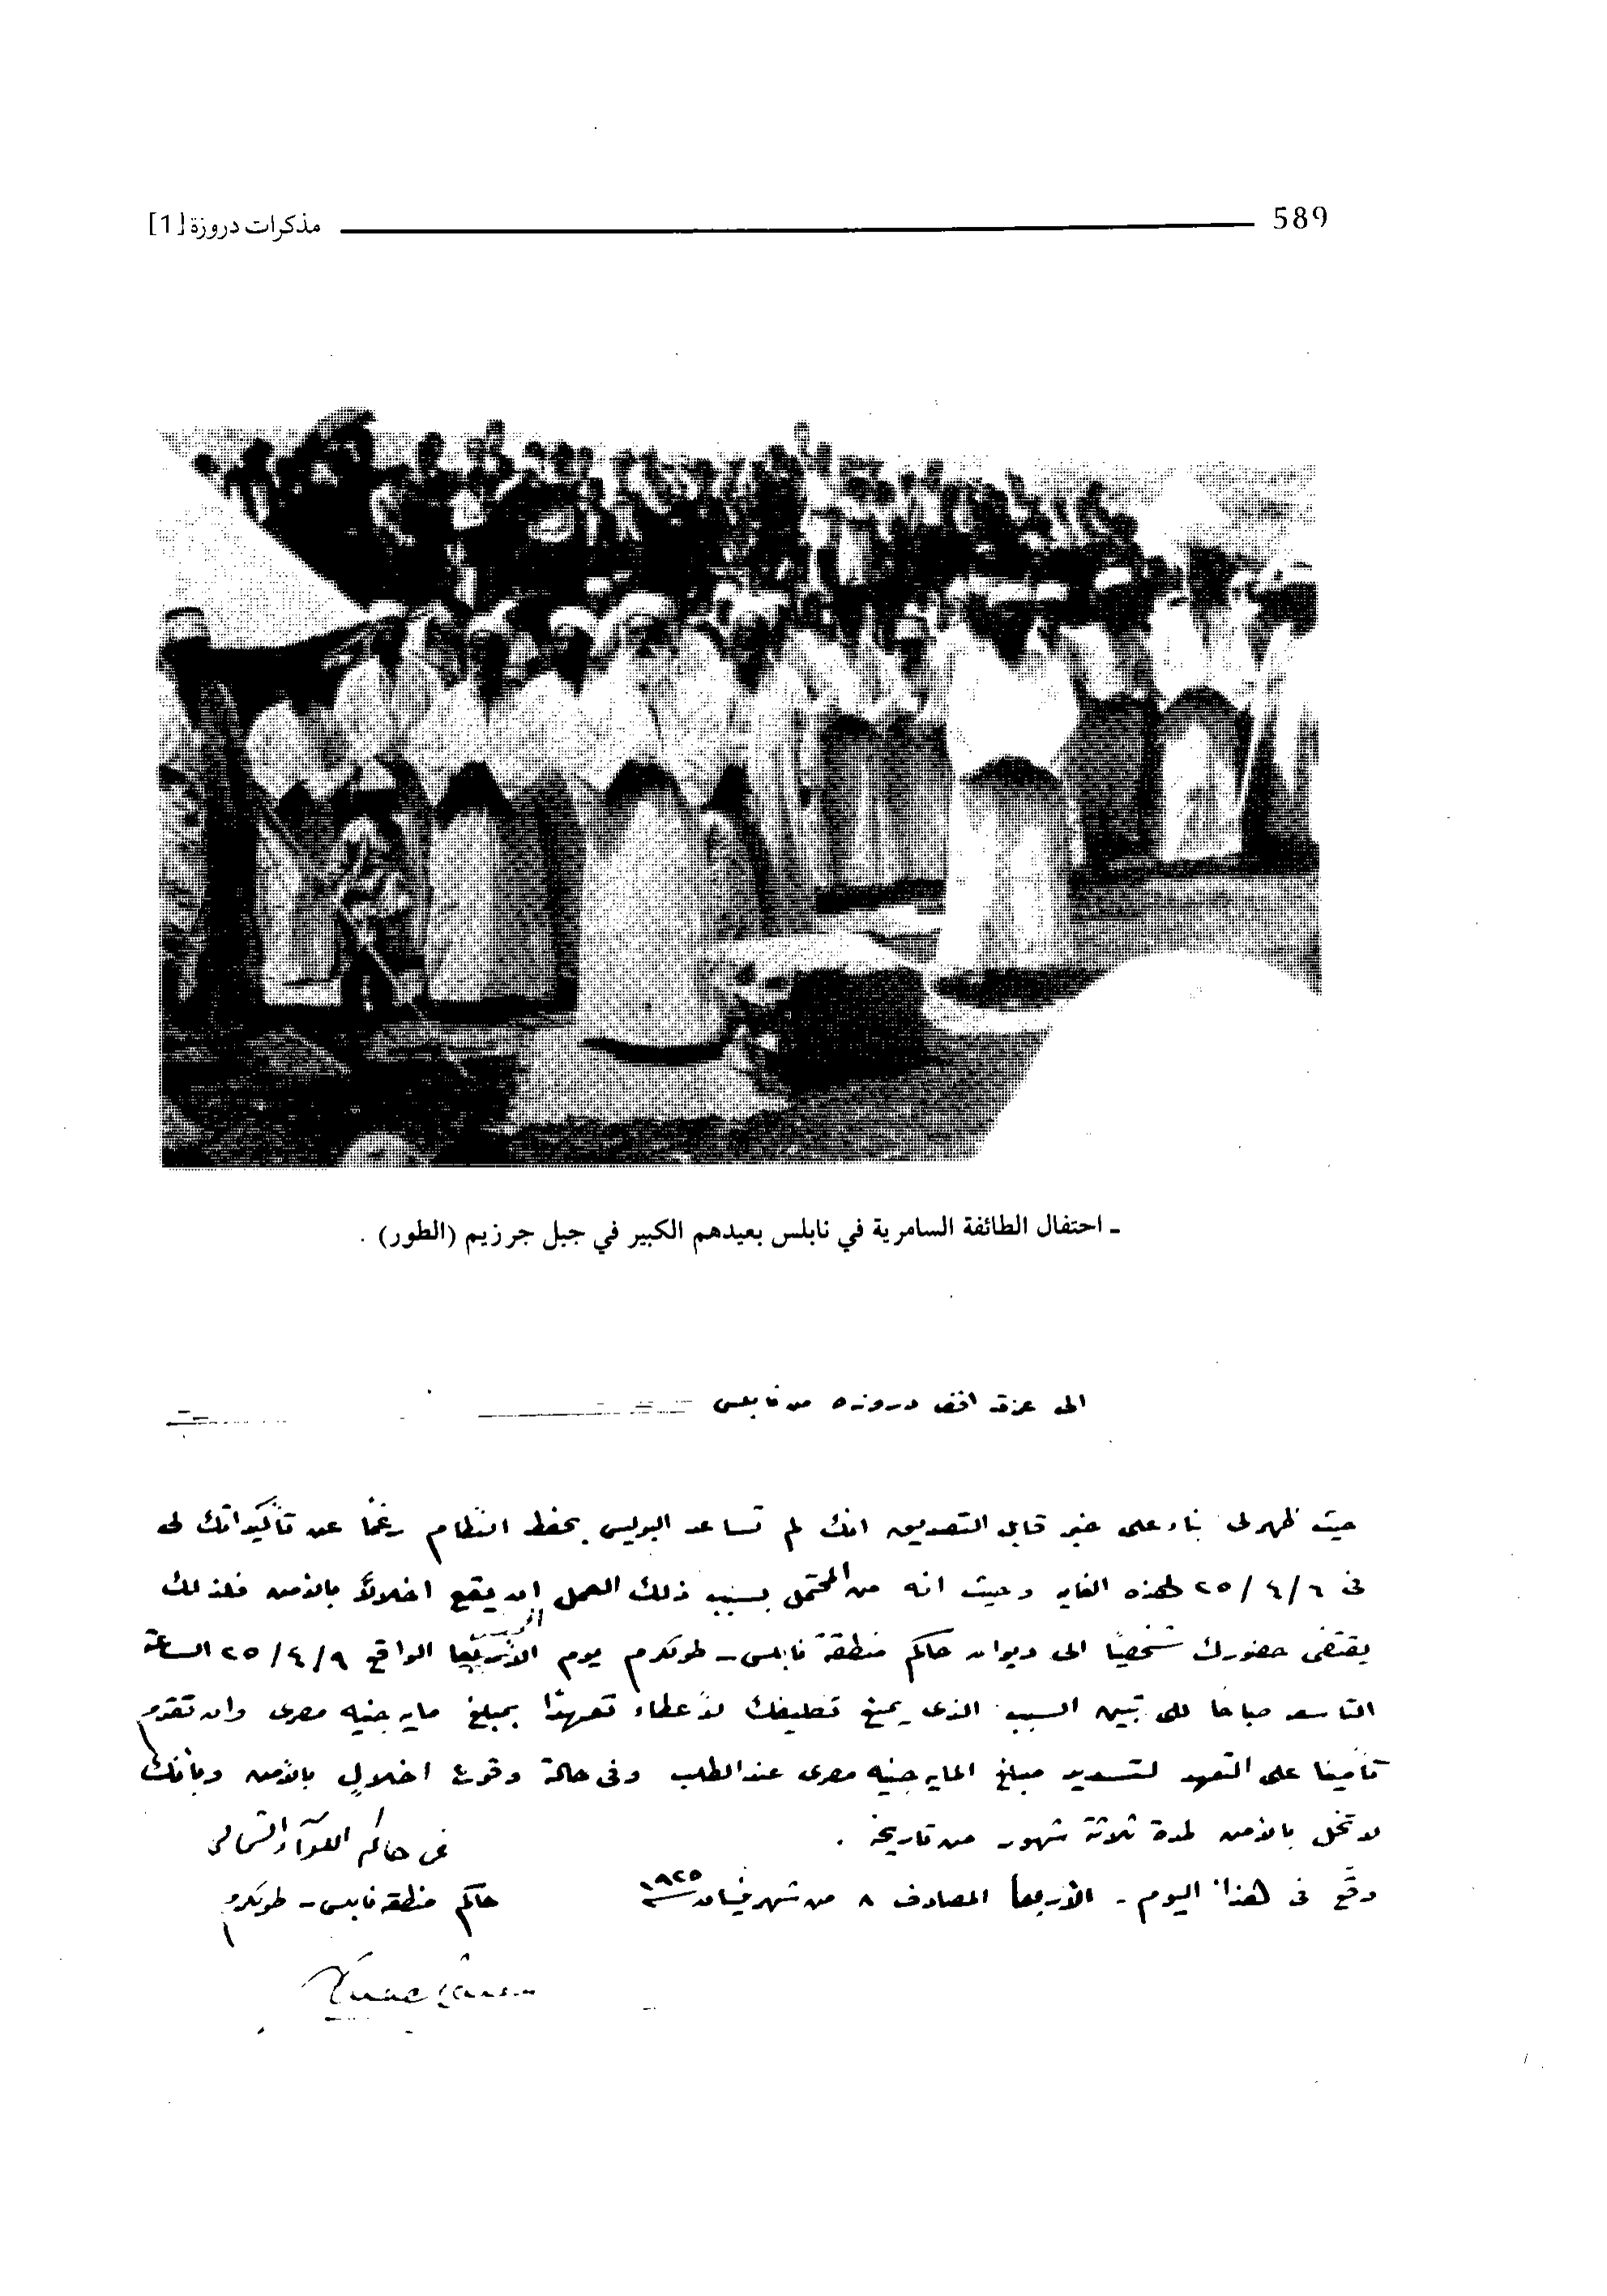 589
مذكرات دروزة [1]
ـ احتفال الطائفة السامرية في نابلس بعيدهم الكبير في جبل جرزيم (الطور) .
الى عزة افندي دروزه من نابلس
حيث ظهر لي بناء على خبر قابل التصديق انك لم تساعد البوليس بحفظ النظام رغماً عن تأكيداتك لي
في ٢٥/٤/٦ لهذه الغايه وحيث انه من المحتمل بسبب ذلك العمل ان يقع اخلالاً بالامن فلذلك
يقتضي حضورك شخصياً الى ديوان حاكم منطقة نابلس - طولكرم يوم الخميس الواقع ٢٥/٤/٩ الساعة
التاسعه صباحا لكي تبين السبب الذي يمنع تكليفك لاعطاء تعهداً بمبلغ مايه جنيه مصري وان تقدم
تأمينا على التعهد لتسديد مبلغ المايه جنيه مصري عند الطلب وفي حالة وقوع اخلالٍ بالامن وبأنك
لا تخل بالامن لمدة ثلاثة شهور من تاريخه .
عن حاكم اللوآء الشمالي
وقّع في هذا اليوم - الاربعا المصادف ٨ من شهر نيسان سنة ١٩٢٥
حاكم منطقة نابلس - طولكرم